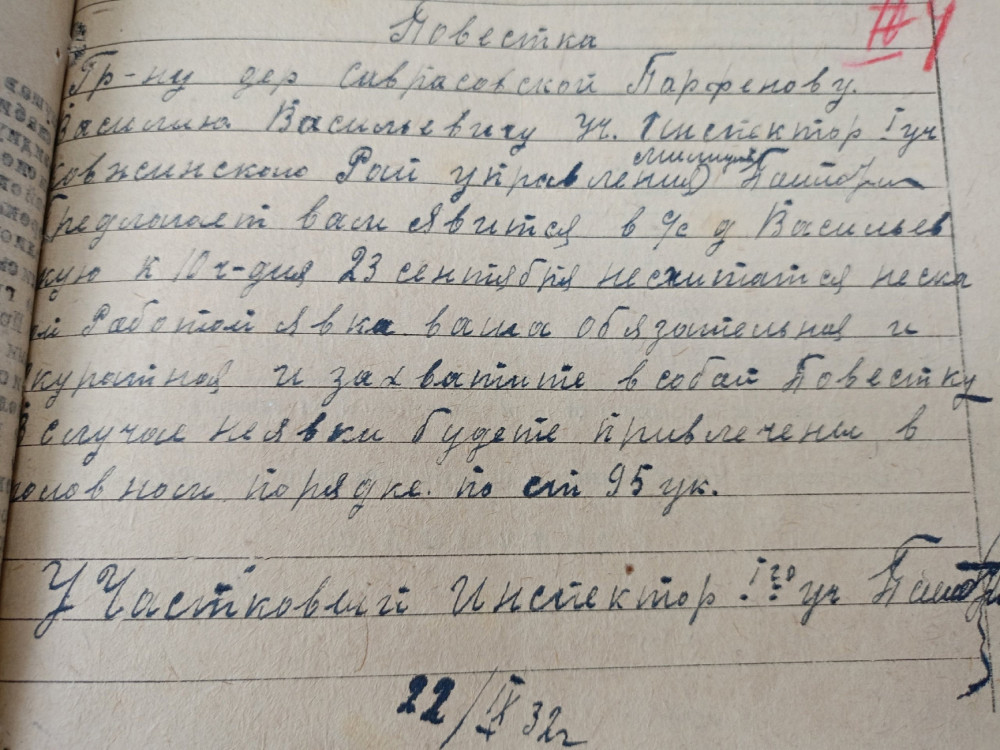 Повестка
№ 4
Гр-ну дер Саврасовской Парфенову.
Василию Васильевичу уч. Инспектор I уч
овжинского Рай управления милиции
Предлогает вам явится в с/с д Васильев
кую к 10 ч-дня 23 сентября несчитатся неска
ой Работой явка ваша обязательная и
куратная и захватите в собой Повестку
В случае неявки будете привлечены в
головном порядке. по ст 95 ук.
УЧастковый Инспектор I го уч
22/IX 32г